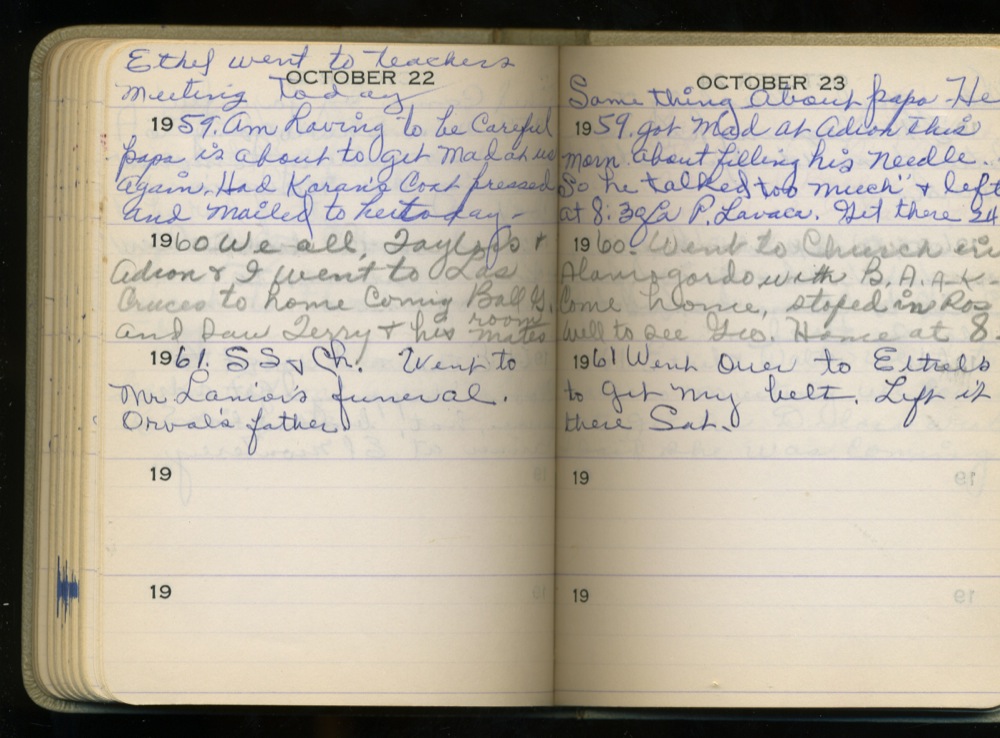 Ethel went to teachers
OCTOBER 22
meeting today
1959. Am having to be careful
papa is about to get mad at us
again. Had Karan's Coat pressed
and mailed to her today -
1960 We all, Taylors &
Adion & I went to Las
Cruces to home Coming Ball G.
and saw Terry & his room mates
1961. SS & Ch. Went to
Mr Lanior's funeral.
Orval's father.
19
19
OCTOBER 23
Some thing about papa - He
1959. got mad at Adion this
morn. about filling his needle.
So he talked "too much" & left
at 8:30 P. Lavaca. Get there 24
1960. Went to Church in
Alamogordo with B.A.
Come home, stoped in Ros
well to see Geo. Home at 8
1961 Went Over to Ethel's
to get my belt. Left it
there Sat.
19
19